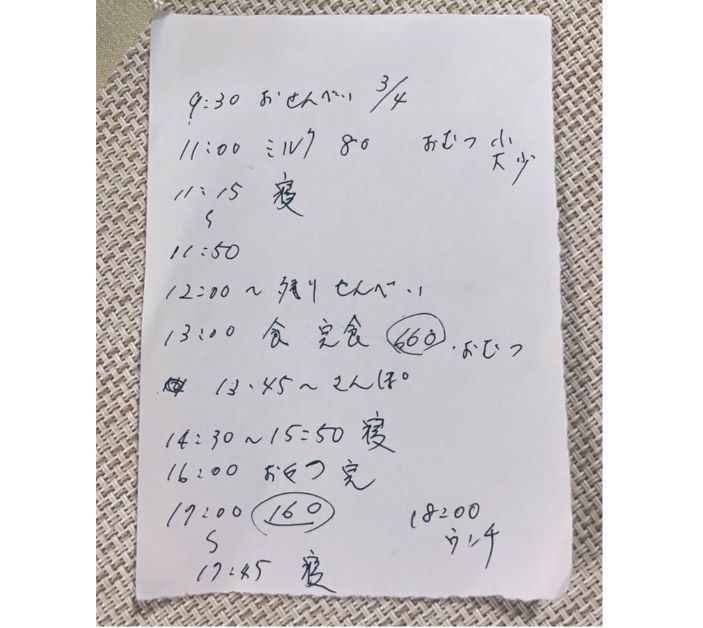 9:30 おせんべい 3/4
11:00 ミルク 80 おむつ 小
大少
11:15 寝
〜
11:50
12:00〜残りせんべい
13:00 食 完食 160 ・おむつ
13:45〜さんぽ
14:30〜15:50 寝
16:00 おやつ 完
17:00 160
〜
17:45 寝
18:00
ウンチ